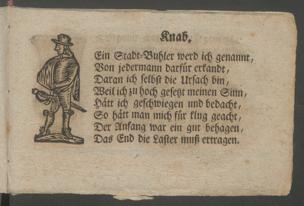 Knab.
Ein Stadt-Buhler werd ich genannt,
Von jedermann darfür erkandt,
Daran ich selbst die Ursach bin,
Weil ich zu hoch gesetzt meinen Sinn,
Hätt ich geschwiegen und bedacht,
So hätt man mich für klug geacht,
Der Anfang war ein gut behagen,
Das End die Laster muß ertragen.